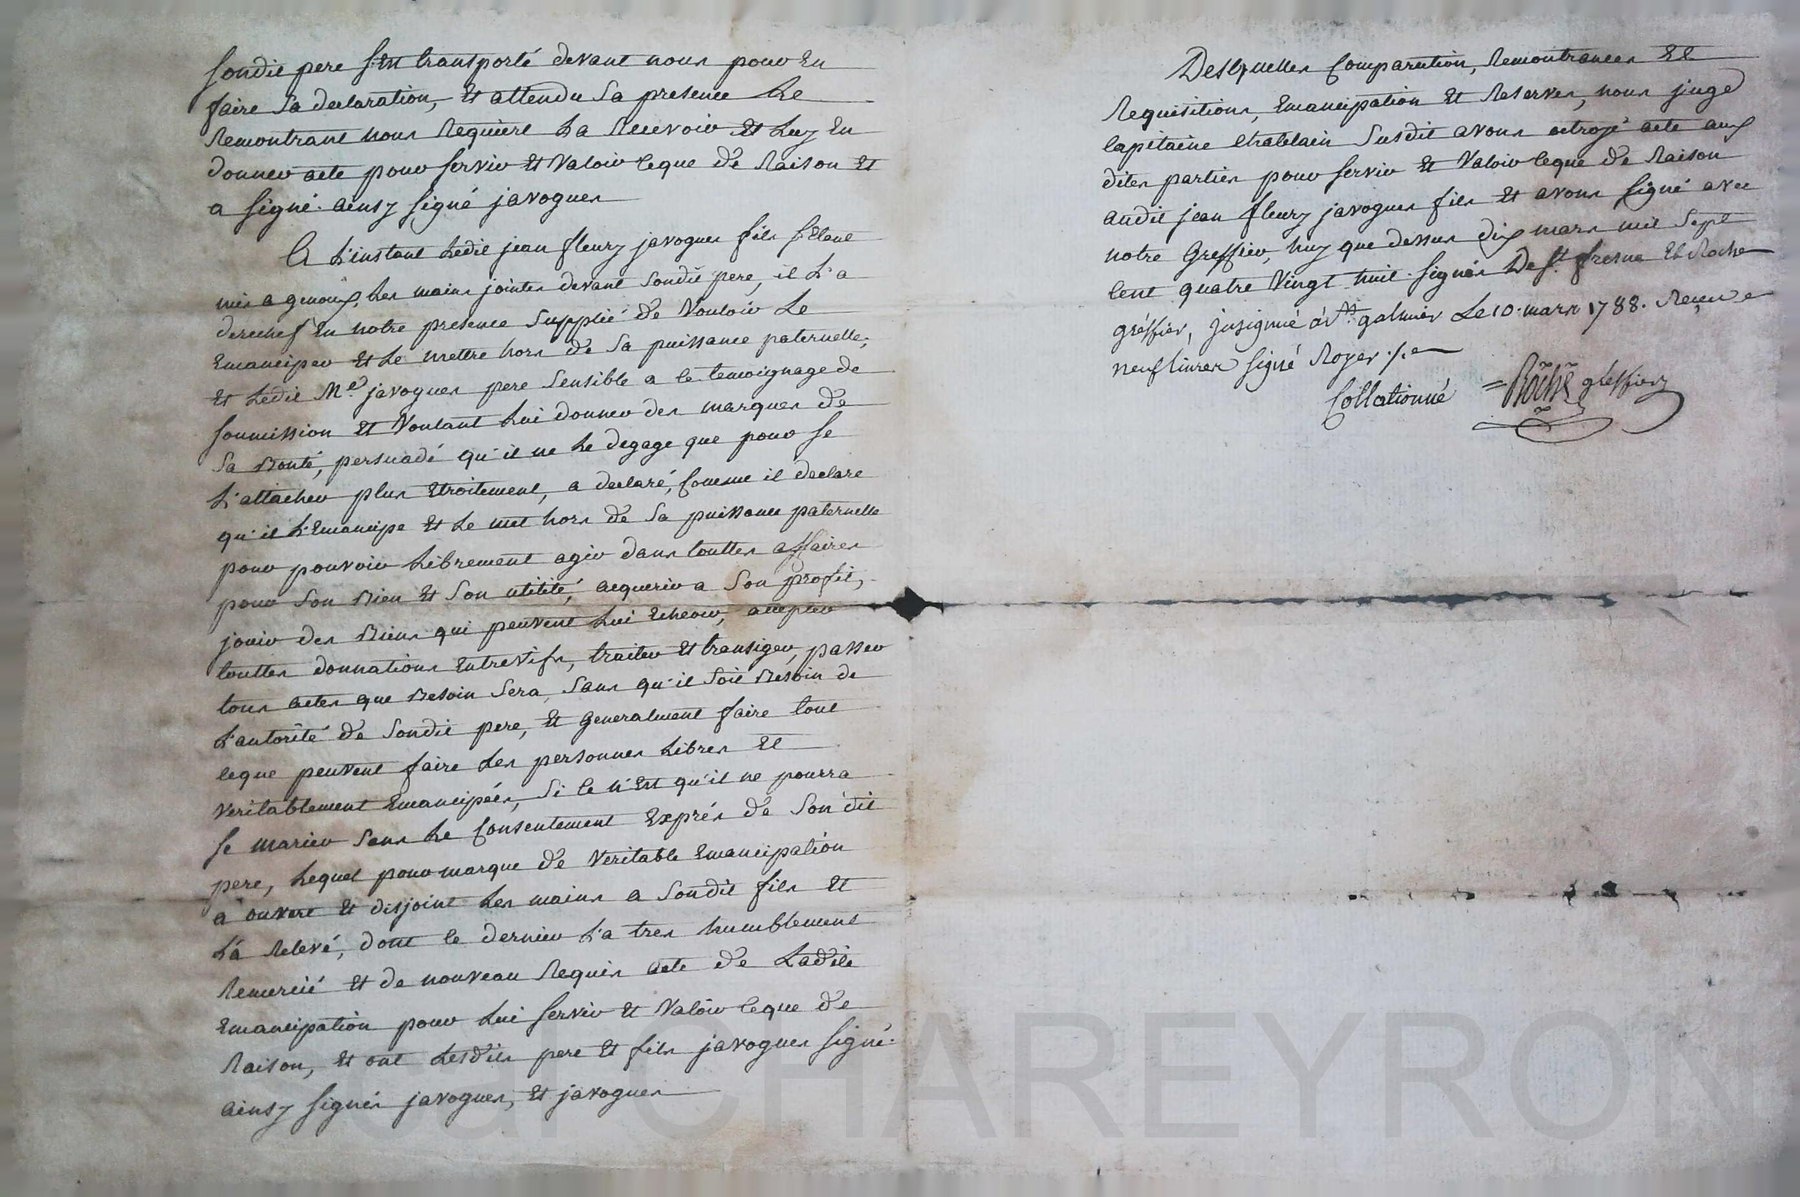 sondit pere s'Est transporté devant nous pour En
faire sa declaration, Et attendu sa presence Le
Remontrant nous Requiert La Recevoir Et Luy En
donner acte pour servir Et Valoir ceque de Raison Et
a signé. ainsy signé javogues
A L'instant Ledit jean fleury javogues fils s'Etant
mis a genoux, Les mains jointes devant sondit pere, il L'a
derechef En notre presence supplié de Vouloir Le
Emanciper Et Le mettre hors de sa puissance paternelle;
Et Ledit Me javogues pere sensible a ce temoignage de
soumission Et Voulant Lui donner des marques de
sa Bonté, persuadé qu'il ne Le degage que pour se
L'attacher plus Etroitement, a declaré, comme il declare
qu'il L'Emancipe Et Le met hors de sa puissance paternelle
pour pouvoir Librement agir dans touttes affaires
pour son Bien Et son utilité, acquerir a son profit,
jouir des Biens qui peuvent Lui Echeoir, accepter
touttes donnations Entrevifs, traiter Et transiger, passer
tous actes que Besoin sera, sans qu'il soit Besoin de
L'autorité de sondit pere, Et generalment faire tout
ceque peuvent faire Les personnes Libres Et
veritablement Emancipées, si ce n'Est qu'il ne pourra
se marier sans Le Consentement Exprés de son dit
pere, Lequel pour marque de Veritable Emancipation
a ouvert Et disjoint Les mains a sondit fils Et
L'a Relevé, dont ce dernier L'a tres humblement
Remercié Et de nouveau Requis acte de Ladite
Emancipation pour Lui servir Et Valoir ceque de
Raison, Et ont Lesdits pere Et fils javogues signé.
ainsy signés javogues, Et javogues
Desquelles Comparution, Remontrances Et
Requisitions, Emancipation Et Reserves, nous juge
Capitaine Chatelain susdit avons octroyé acte aux
dites parties pour servir Et Valoir ceque de Raison
audit jean fleury javogues fils Et avons signé avec
notre Greffier, huy que dessus dix mars mil sept
cent quatre Vingt huit. signés De St fresne Et Roche
gréffier, Insignué a St galmier Le 10. mars 1788. Reçu
neuf livres signé Royer
Collationné Roche greffier
CHAREYRON